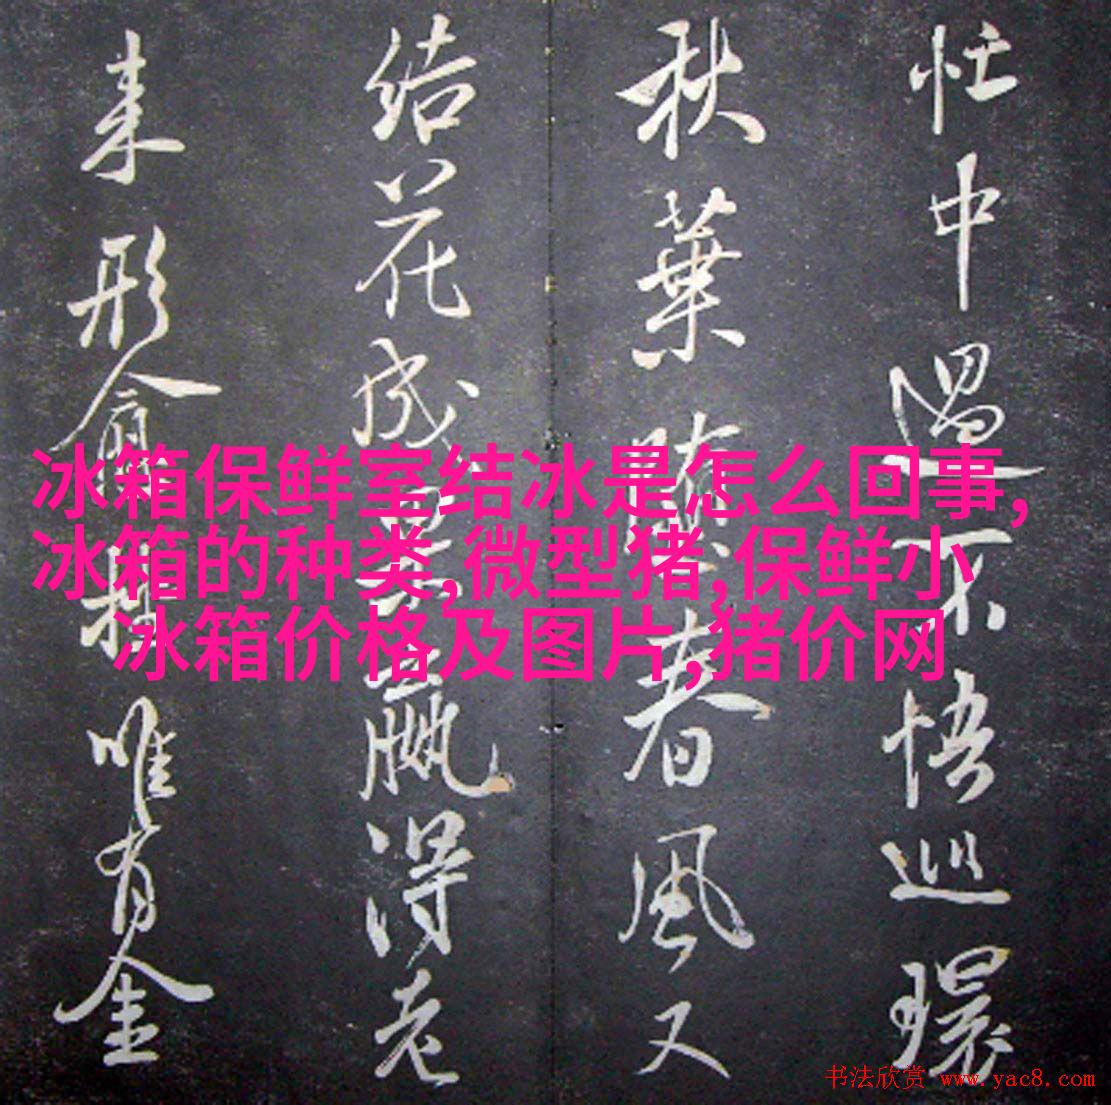 忙中過不悟巡環
秋葉春風又
結花成贏得老
來形唯有金
冰箱保鲜室结冰是怎么回事,
冰箱的种类,微型猪,保鲜小
冰箱价格及图片,猪价网
书法欣赏 www.yac8.com